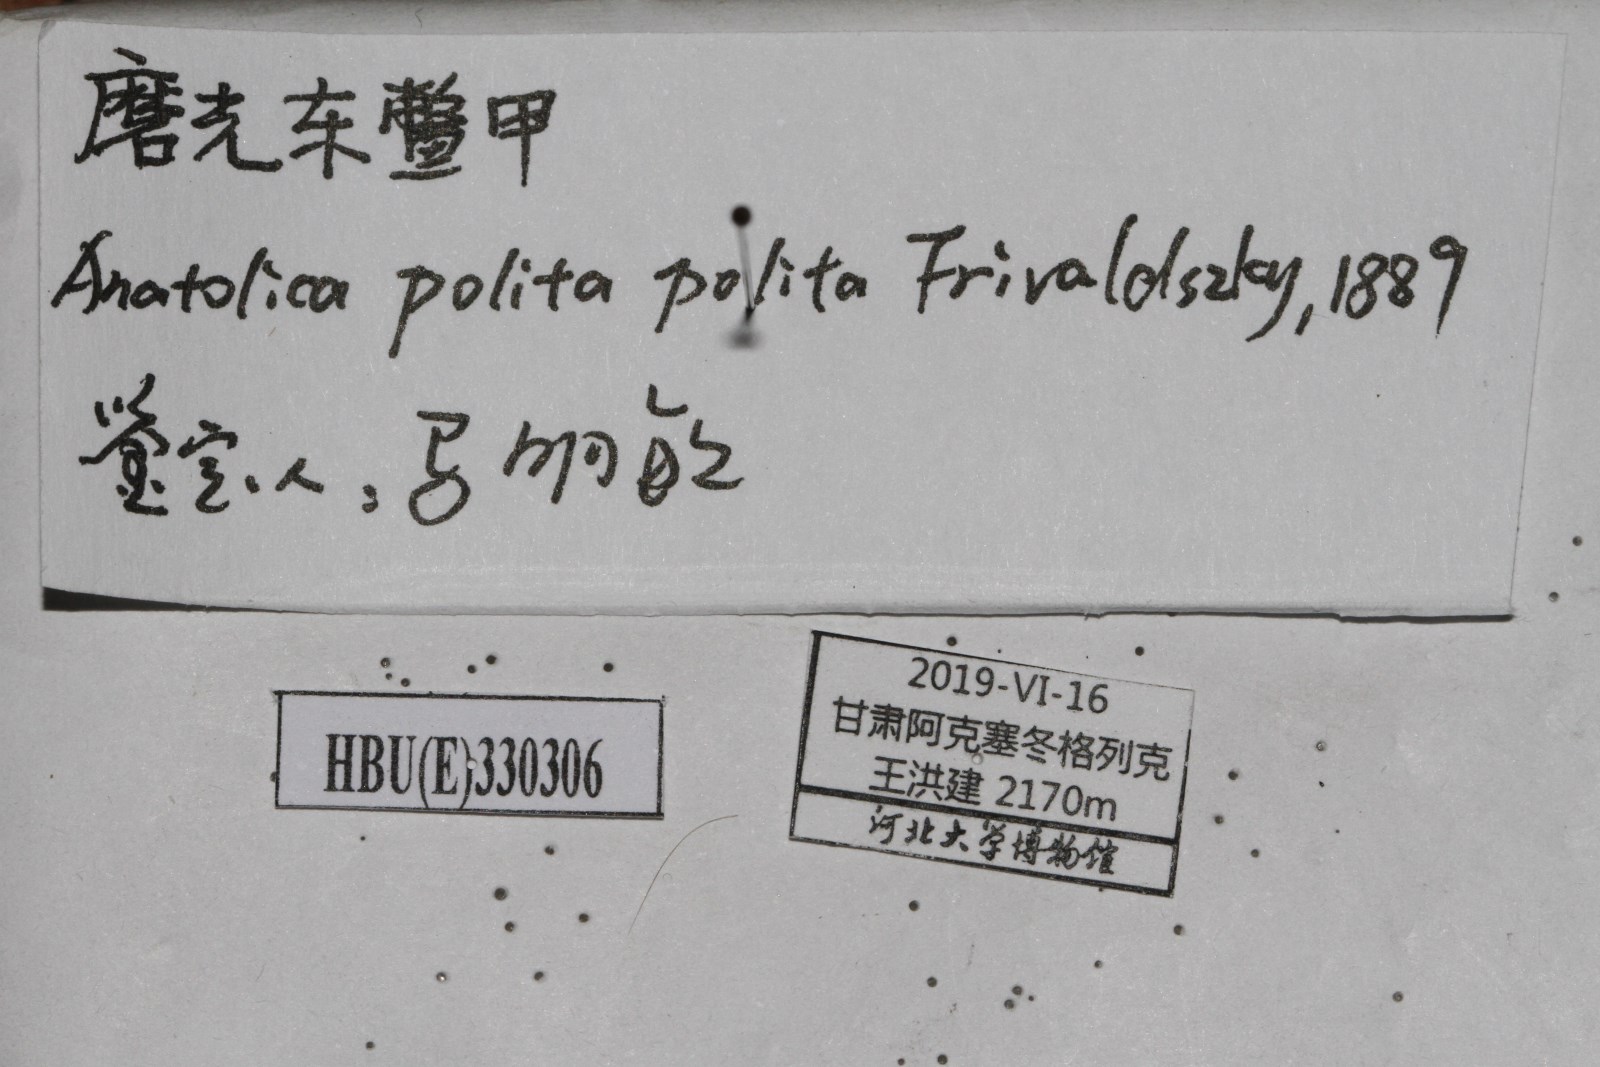 磨光东鳖甲
Anatolica polita polita Frivaldszky, 1889
鉴定人：马明
HBU(E)330306
2019-VI-16
甘肃阿克塞冬格列克
王洪建 2170m
河北大学博物馆